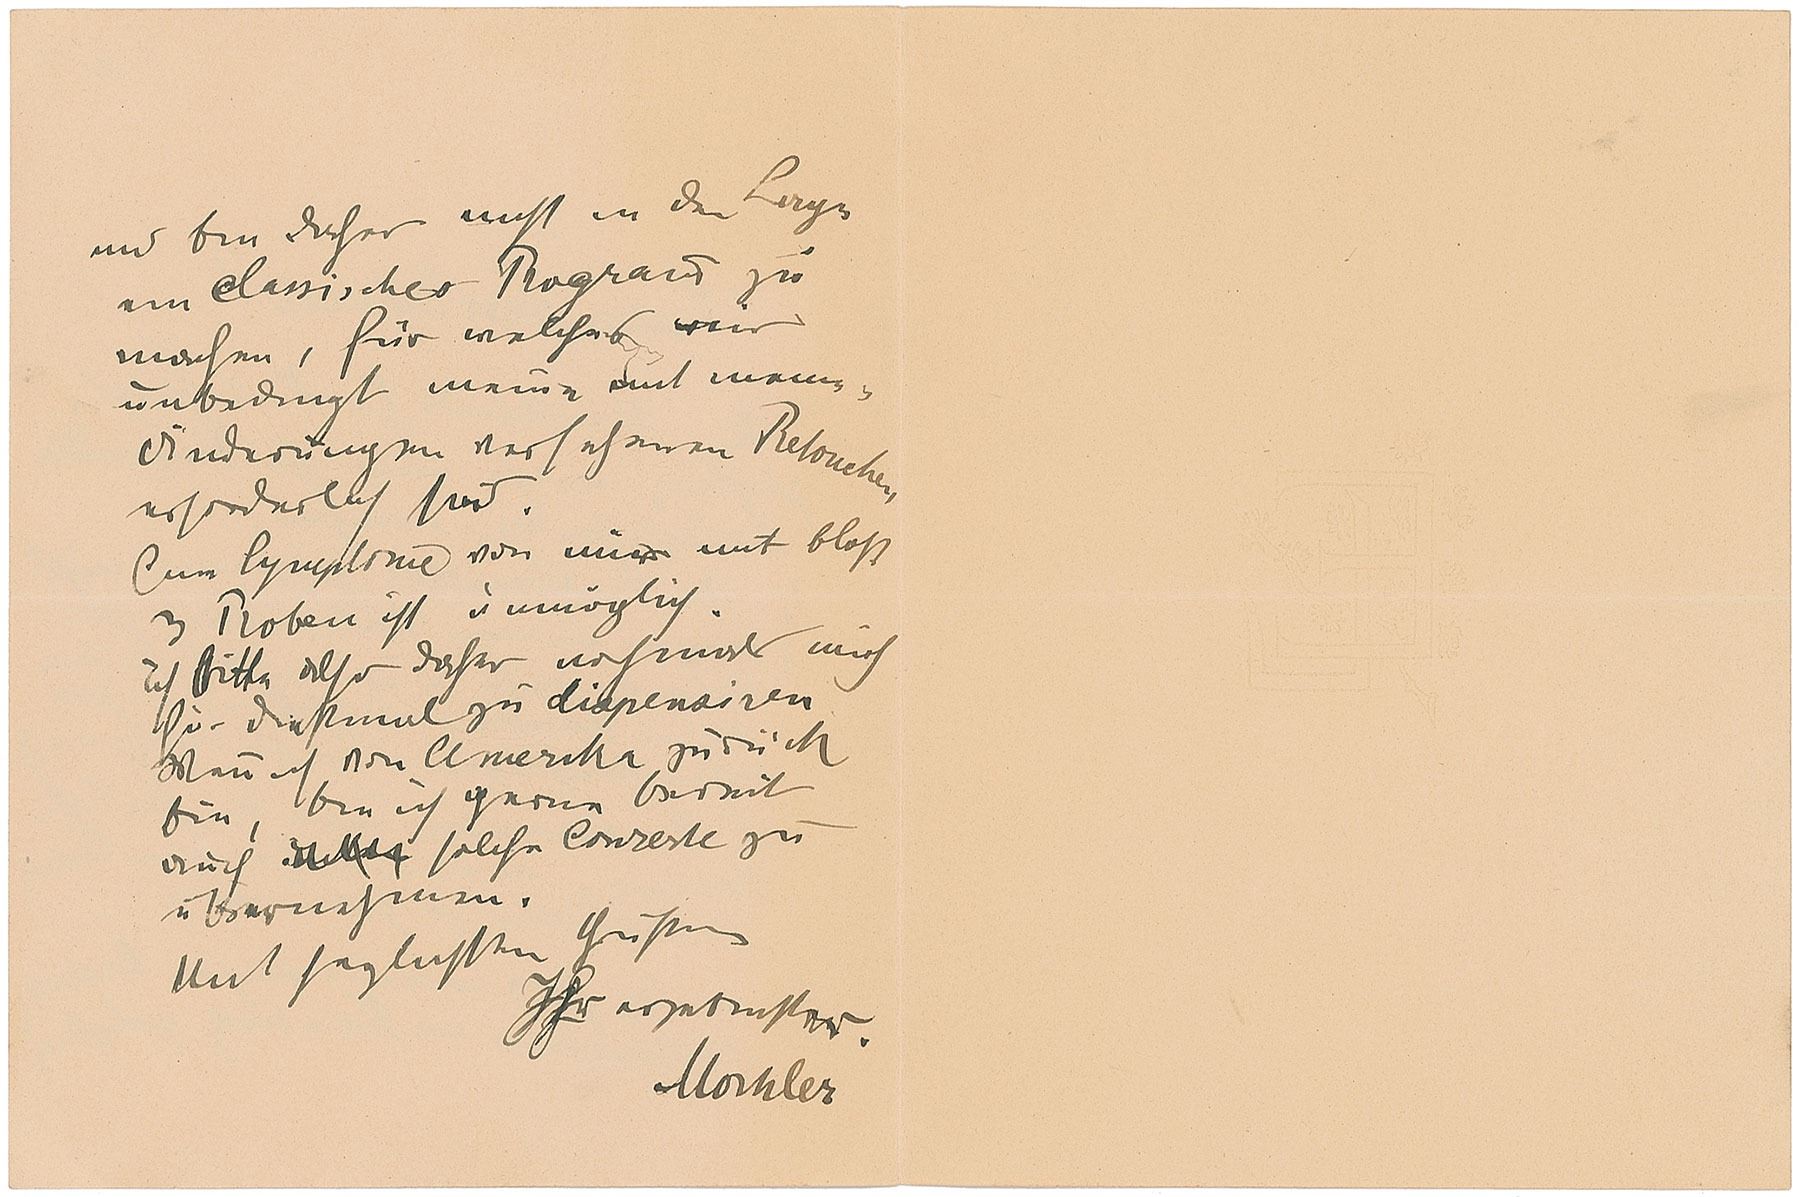 und bin daher nicht in der Lage
ein classisches Program̄ zu
machen, für welches mir
unbedingt meine mit meinen
Änderungen versehenen Retouchen,
erforderlich sind.
Eine Symphonie von mir mit bloß
3 Proben ist unmöglich.
ich bitte also daher nochmals mich
für dießmal zu dispensiren
Wen̄ ich von Amerika zurück
bin, bin ich gerne bereit
auch solche Conzerte zu
übernehmen.
Mit herzlichsten Grüßen
Ihr ergebenster.
Mahler